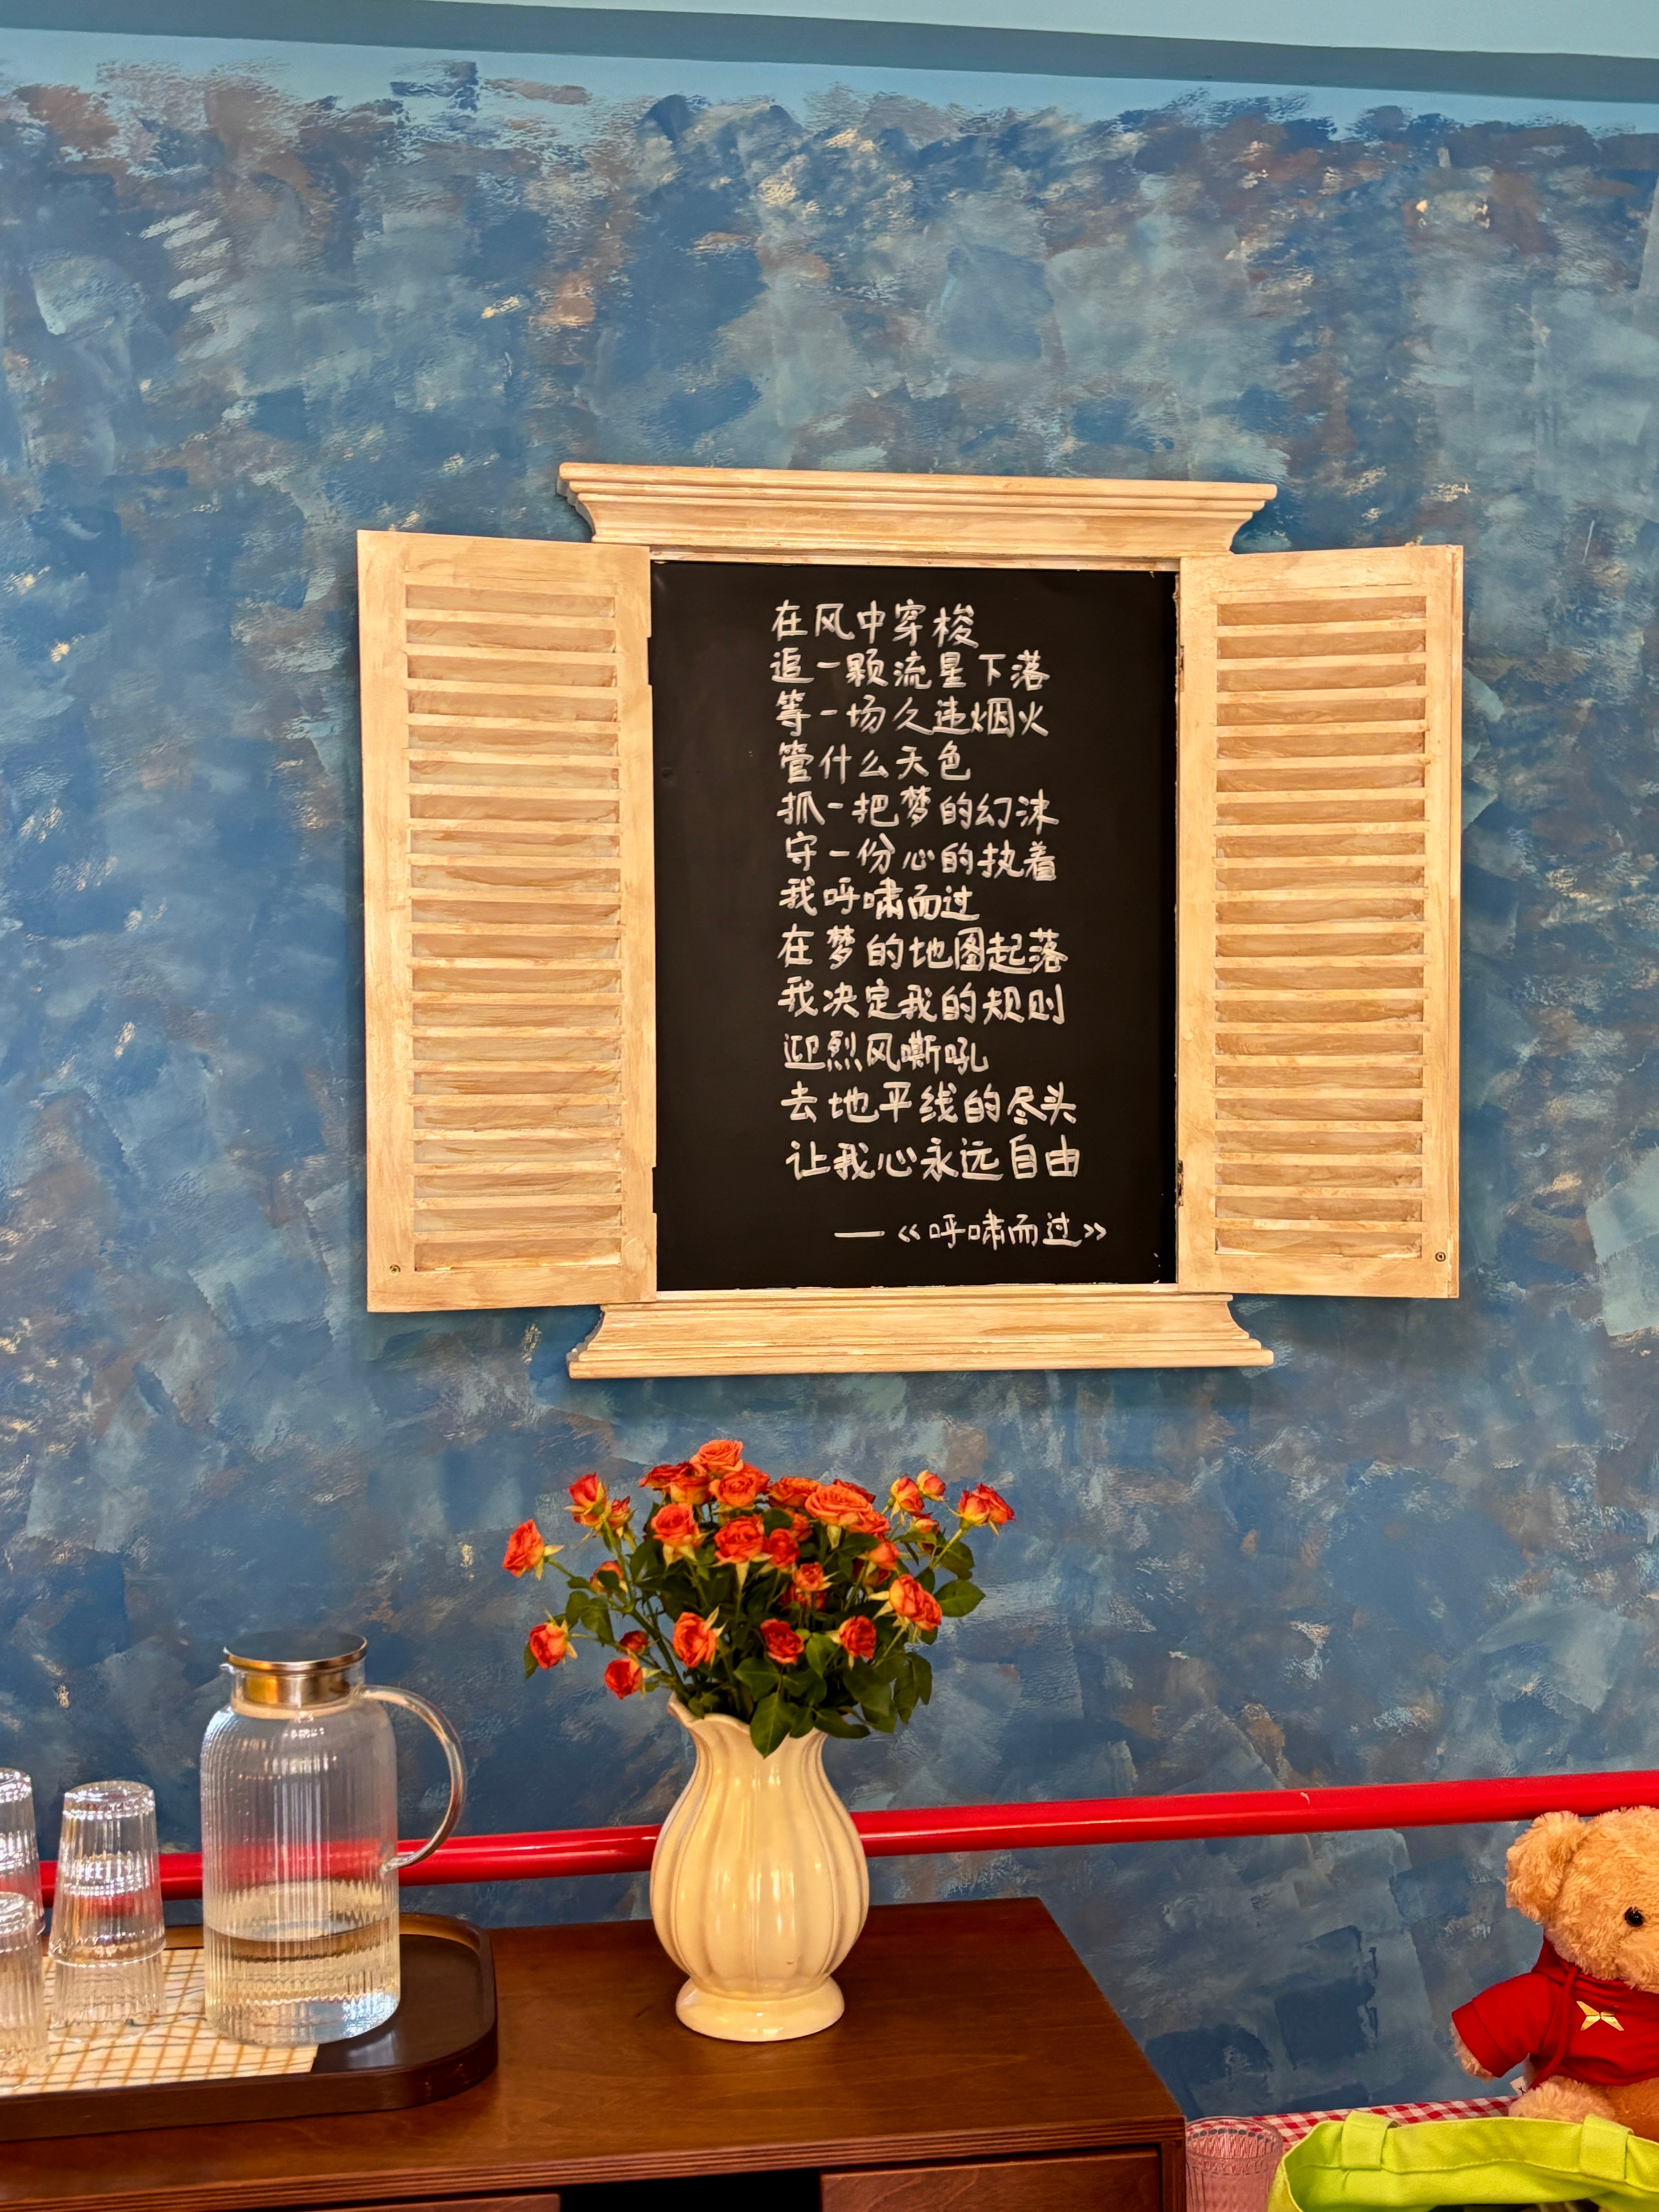 在风中穿梭
追一颗流星下落
等一场久违烟火
管什么天色
抓一把梦的幻沫
守一份心的执着
我呼啸而过
在梦的地图起落
我决定我的规则
迎烈风嘶吼
去地平线的尽头
让我心永远自由
—《呼啸而过》